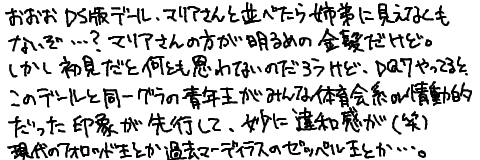 おおお DS版デール、マリアさんと並べたら姉弟に見えなくも
ないぞ…？マリアさんの方が明るめの金髪だけど。
しかし初見だと何とも思わないのだろうけど、DQ7やってると、
このデールと同一グラの青年王がみんな体育会系or情動的
だった印象が先行して、妙に違和感が(笑)
現代のフォロッド王とか過去マーディラスのゼッペル王とか…。